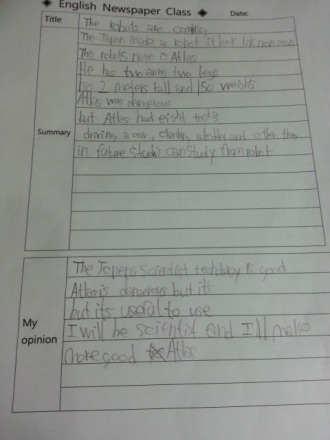 English Newspaper Class Date:
Title The Robots are coming
The Japen made a robot it look like non man
The robots name is Atlas
Summary
He has two arms two legs
his 2 meters tall and 150 weighs
Atlas was dangerous
but Atlas had eight tests
driving a car, climbing a ladder and other
in future students can study from robot
My opinion
The Japens Scientist is good
Atlas is dangerous but its
but its useful to use
I will be scientist and I'll make
more good Atlas